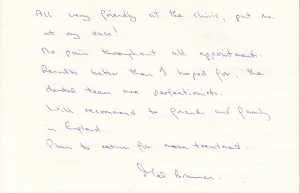 All very friendly at the clinic, put me
at my ease!
No pain throughout all appointment.
Results better than I hoped for, the
dental team are perfectionists.
Will recommend to friends and family
in England.
Plan to return for more treatment.